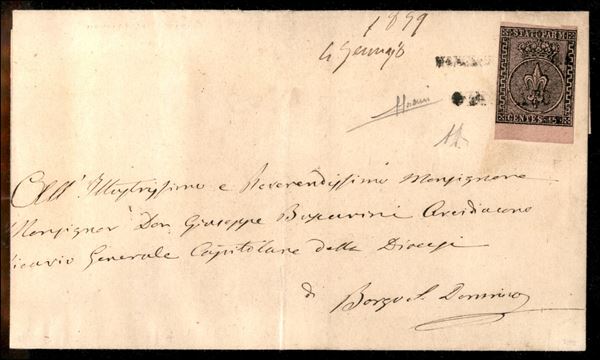 1859
STATI PARM
CENTES. 15
All' Illustrissimo e Reverendissimo Monsignore
Monsignor Don Giuseppe Arcidiacono
Vicario Generale Capitolare della Diocesi
di Borgo S. Donnino